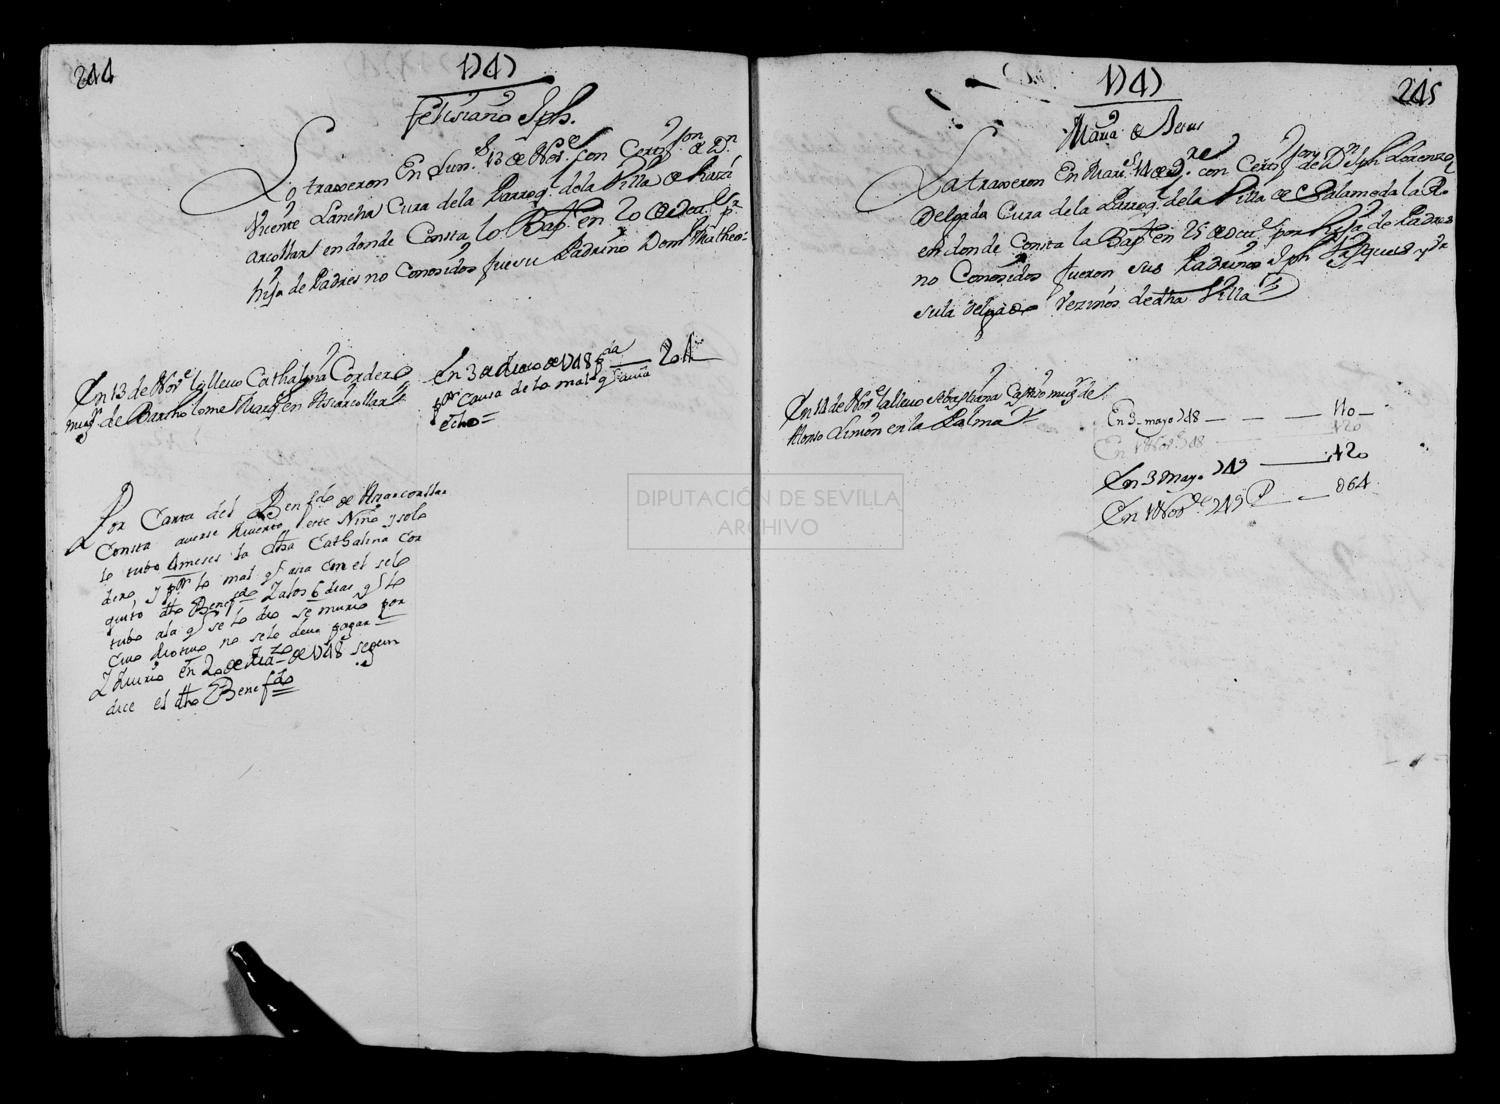 244
1747
Felisiano Jph.
Lo traxeron En Lun.s 13 de Nov.e con Certif.on de Dn
Vicente Lancha Cura dela Parroq.l dela Villa de Aznal
arcollar en donde Consta lo Bap.e en 20 de
hijo de Padres no Conosidos fue su Padrino Dom.o Matheo
En 13 de Nov.e la llevo Cathalina Cordero
mug.r de Bartholome en Asnarcollar
En 3 de Enero de 1748 204
por Causa de lo mal q.
echo
Por Carta del Benef.do de Asnarcollar
Consta averse muerto este Niño y solo
lo tubo 4 meses la dha Cathalina Cor
dero y por lo mal q. asia con el selo
quito dho Benef.do los 6 dias q. lo
tubo a la q. se lo dio se murio por
cuio motivo no selo deve pagar
murio en 20 de de 1748 segun
dice el dho Benef.do
245
1747
Maria de Jesus
La traxeron En Mart.s 14 de 9.re con Certif.on de Dn Jph Lorenzo
Delgado Cura dela Parroq.l dela Villa de Palameda la R.
en donde Consta la Bap.e en 25 de por Hija de Padres
no Conosidos fueron sus Padrinos Jph Vasques y
sula Delgado Vezinos de dha Villa
En 14 de Nov.e la llevo Sebastiana Castro mug.r de
Alonso Limon en la Palma
En 3 mayo 748 110
En 1 Nov.e 748 120
En 3 Mayo 749 120
En 1 Nov.e 749 064
DIPUTACIÓN DE SEVILLA
ARCHIVO